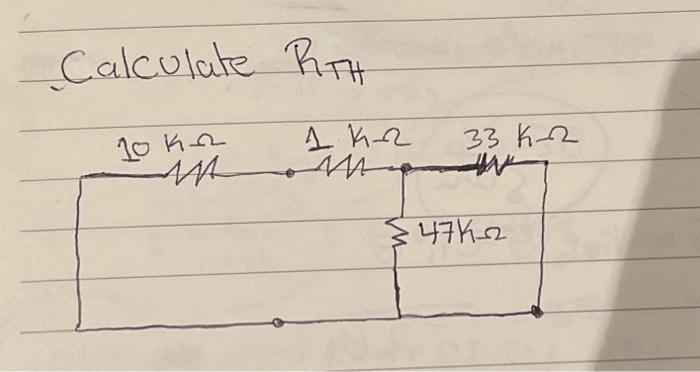 Calculate RTH
10 KΩ 1 KΩ 33 KΩ
47KΩ